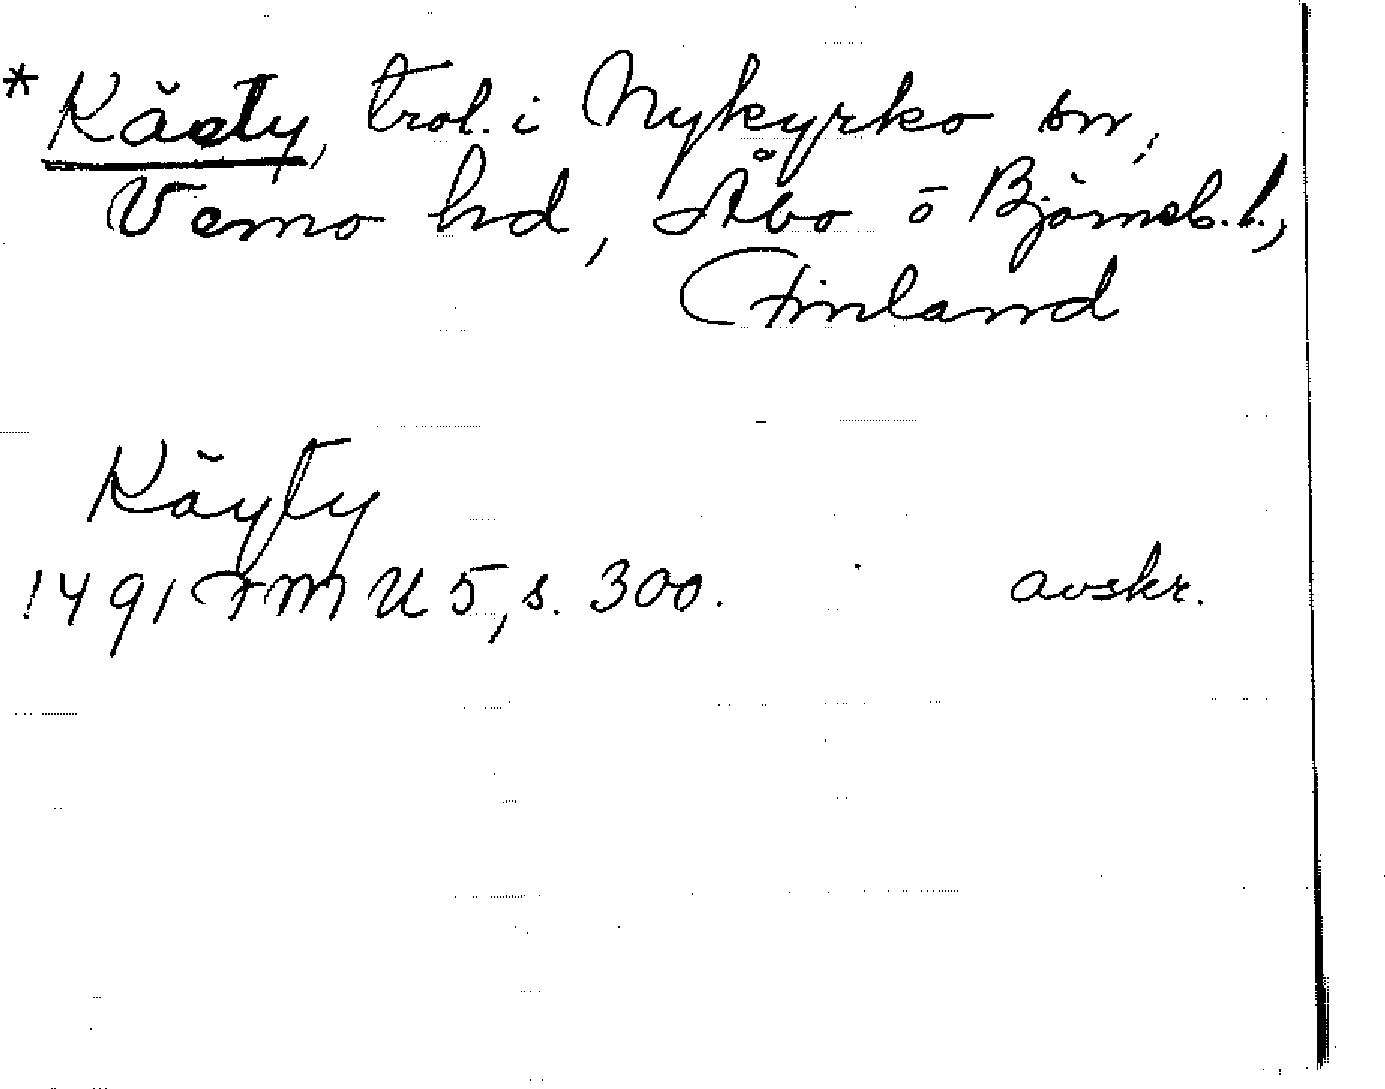 * Kädty, trol. i Nykyrko sn,
Vemo hd, Åbo o Björneb. l.,
Finland
Käyty
1491 FMU 5, s. 300. avskr.